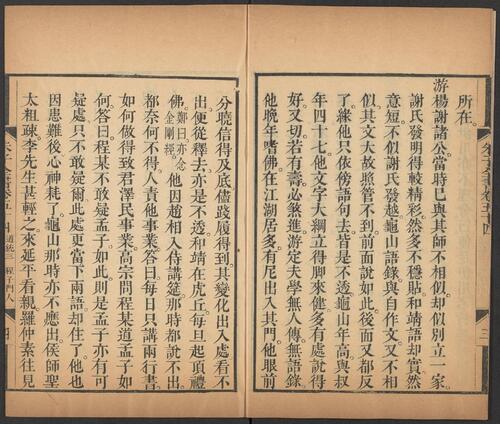 所在
游楊謝諸公當時已與其師不相似却似别立一家
謝氏發明得較精彩然多不穩貼和靖語却實然
意短不似謝氏發越龜山語錄與自作文又不相
似其文大故照管不到前面說如此後面又都反
了緣他只依傍語句去皆是不透龜山年高與叔
年四十七他文字大綱立得脚來健多有處說得
好又切若有壽必煞進游定夫學無人傳無語錄
他晚年嗜佛在江湖居多有尼出入其門他眼前
分曉信得及底儘踐履得到其變化出入處看不
出便從釋去亦是不透和靖在虎丘每旦起頂禮
佛鄭曰亦念金剛經他因趙相入侍講筵那時都說不出
都奈何不得人責他事業答曰每日只講兩行書
如何做得致君澤民事業高宗問程某道孟子如
何答曰程某不敢疑孟子如此則是孟子亦有可
疑處只不敢疑爾此處更當下兩語却住了他也
因患難後心神耗了龜山那時亦不應出侯師聖
太粗疎李先生甚輕之來延平看親羅仲素往見
道統三 程子門人
四